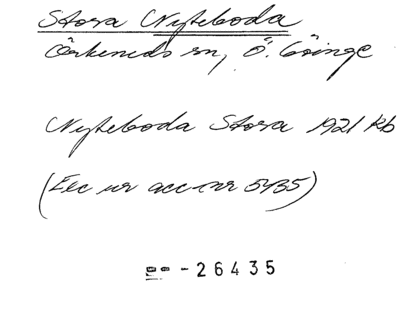 Stora Nyteboda
Örkeneds sn, Ö. Göinge
Nyteboda Stora 1921 Kb
(Exc ur acc-nr 5435)
-26435